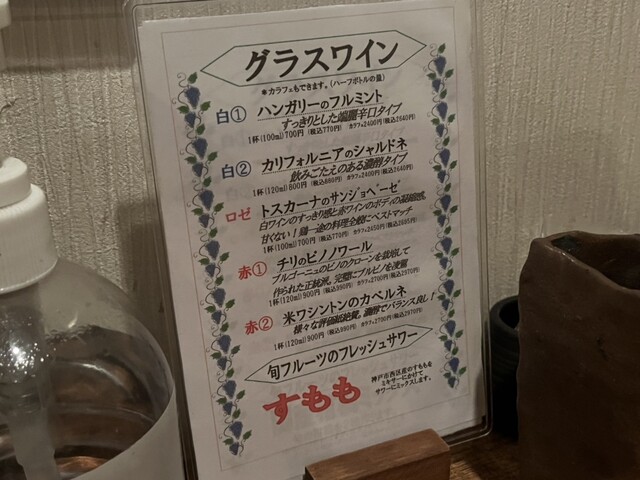 グラスワイン
＊カラフェもできます。(ハーフボトルの量)
白① ハンガリーのフルミント
すっきりとした端麗辛口タイプ
1杯(100ml)700円 (税込770円) カラフェ2400円(税込2640円)
白② カリフォルニアのシャルドネ
飲みごたえのある濃醇タイプ
1杯(120ml)800円 (税込880円) カラフェ2400円(税込2640円)
ロゼ トスカーナのサンジョベーゼ
白ワインのすっきり感と赤ワインのボディの凝縮感。
甘くない！鶏一途の料理全般にベストマッチ
1杯(100ml)700円 (税込770円) カラフェ2450円(税込2695円)
赤① チリのピノノワール
ブルゴーニュのピノのクローンを栽培して
作られた正統派。完璧にブルピノを凌駕
1杯(120ml)900円 (税込990円) カラフェ2700円(税込2970円)
赤② 米ワシントンのカベルネ
様々な評価誌絶賛。濃醇でバランス良し！
1杯(120ml)900円 (税込990円) カラフェ2700円(税込2970円)
旬フルーツのフレッシュサワー
すもも
神戸市西区産のすももを
ミキサーにかけて
サワーにミックスします。